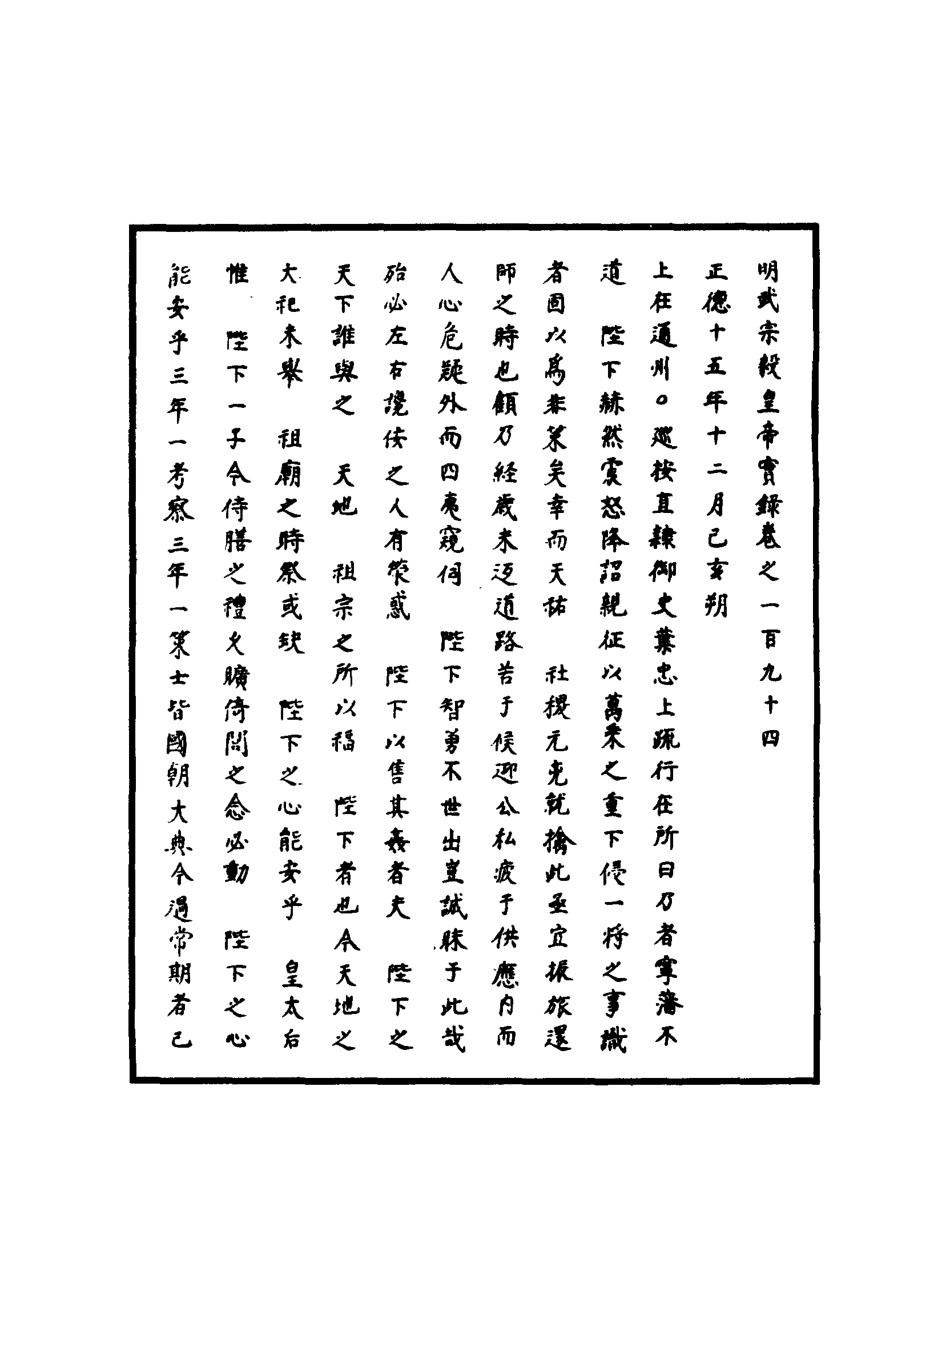 明武宗毅皇帝實錄卷之一百九十四
正德十五年十二月己亥朔
上在通州○巡按直隸御史葉忠上疏行在所曰乃者寧藩不
道　陛下赫然震怒降詔親征以萬乘之重下侵一將之事識
者固以為非策矣幸而天祐　社稷元兇就擒此亟宜振旅還
師之時也顧乃経歲未返道路苦于候迎公私疲于供應内而
人心危疑外而四夷窺伺　陛下智勇不世出豈誠昧于此哉
殆必左右讒佞之人有熒惑　陛下以售其姦者夫　陛下之
天下誰與之　天地　祖宗之所以福　陛下者也今天地之
大祀未舉　祖廟之時祭或缺　陛下之心能安乎　皇太后
惟　陛下一子今侍膳之禮久曠倚閭之念必動　陛下之心
能安乎三年一考察三年一策士皆國朝大典今過常期者已